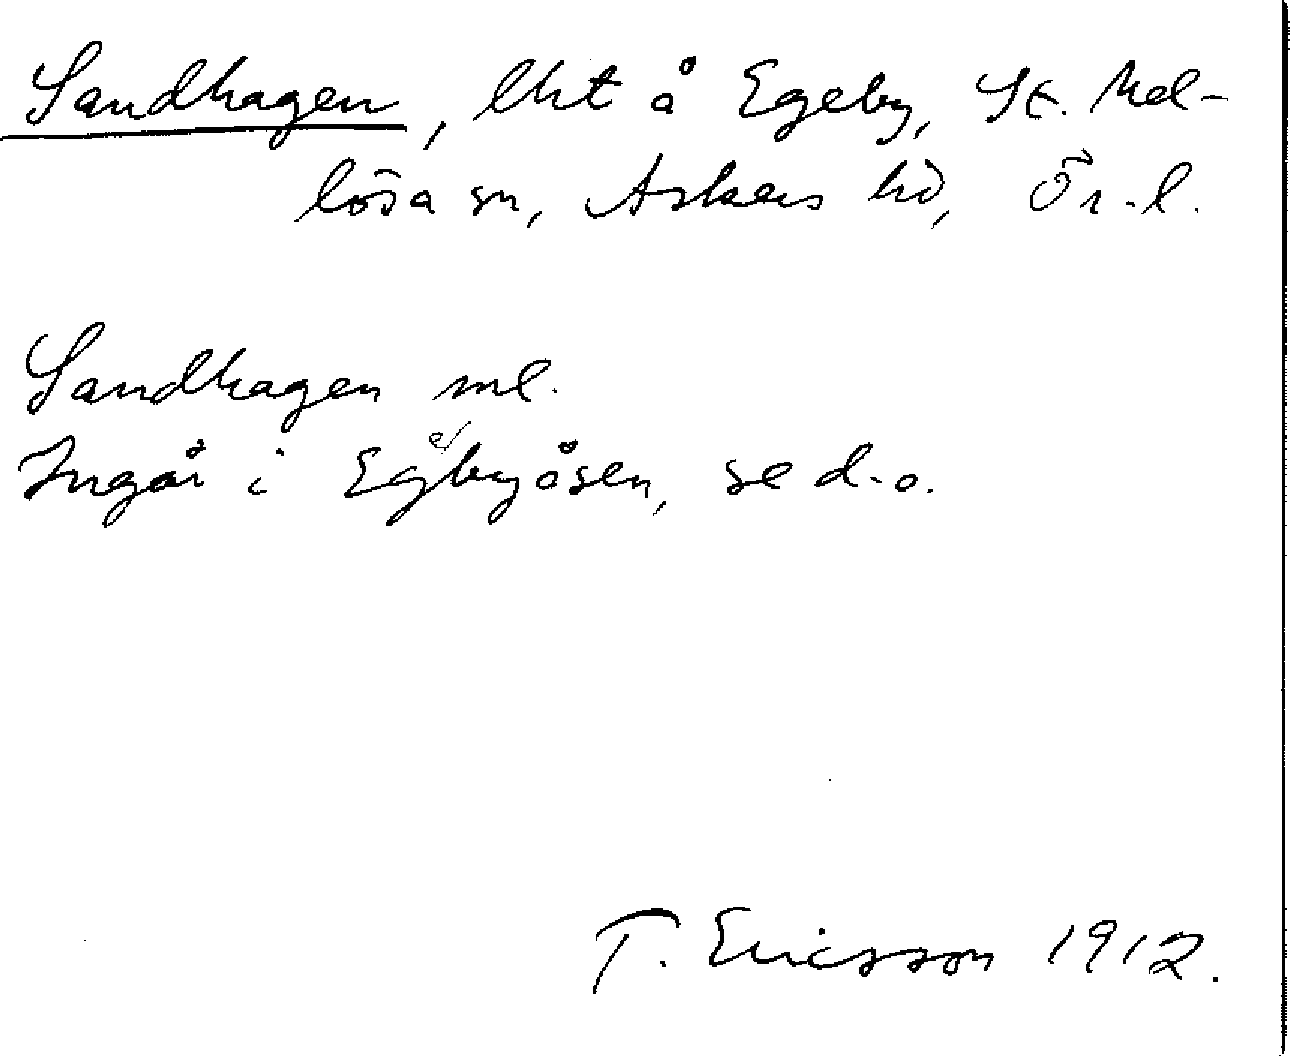 Sandhagen, lht å Egeby, St. Mel-
lösa sn, Askers hd, Ör.l.
Sandhagen ml.
Ingår i Egebyåsen, se d.o.
T. Ericsson 1912.